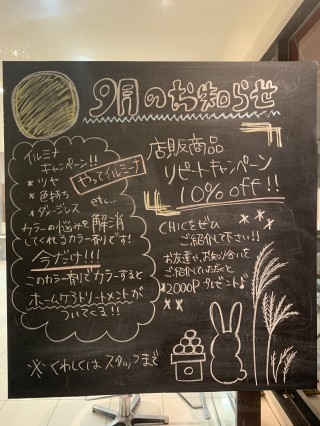 9月のお知らせ
イルミナ
キャンペーン!!
* ツヤ
* 色持ち
* ダメージレス
etc...
やってイルミーナ
カラーの悩みを解消
してくれるカラー剤です!
今だけ!!!
このカラー剤でカラーすると
ホームケアトリートメントが
ついてくる!!
店販商品
リピートキャンペーン
10% off!!
CHICをぜひ
ご紹介して下さい!!
お友達、お知り合いを
ご紹介いただくと
*2000P プレゼント♪
※ くわしくはスタッフまで